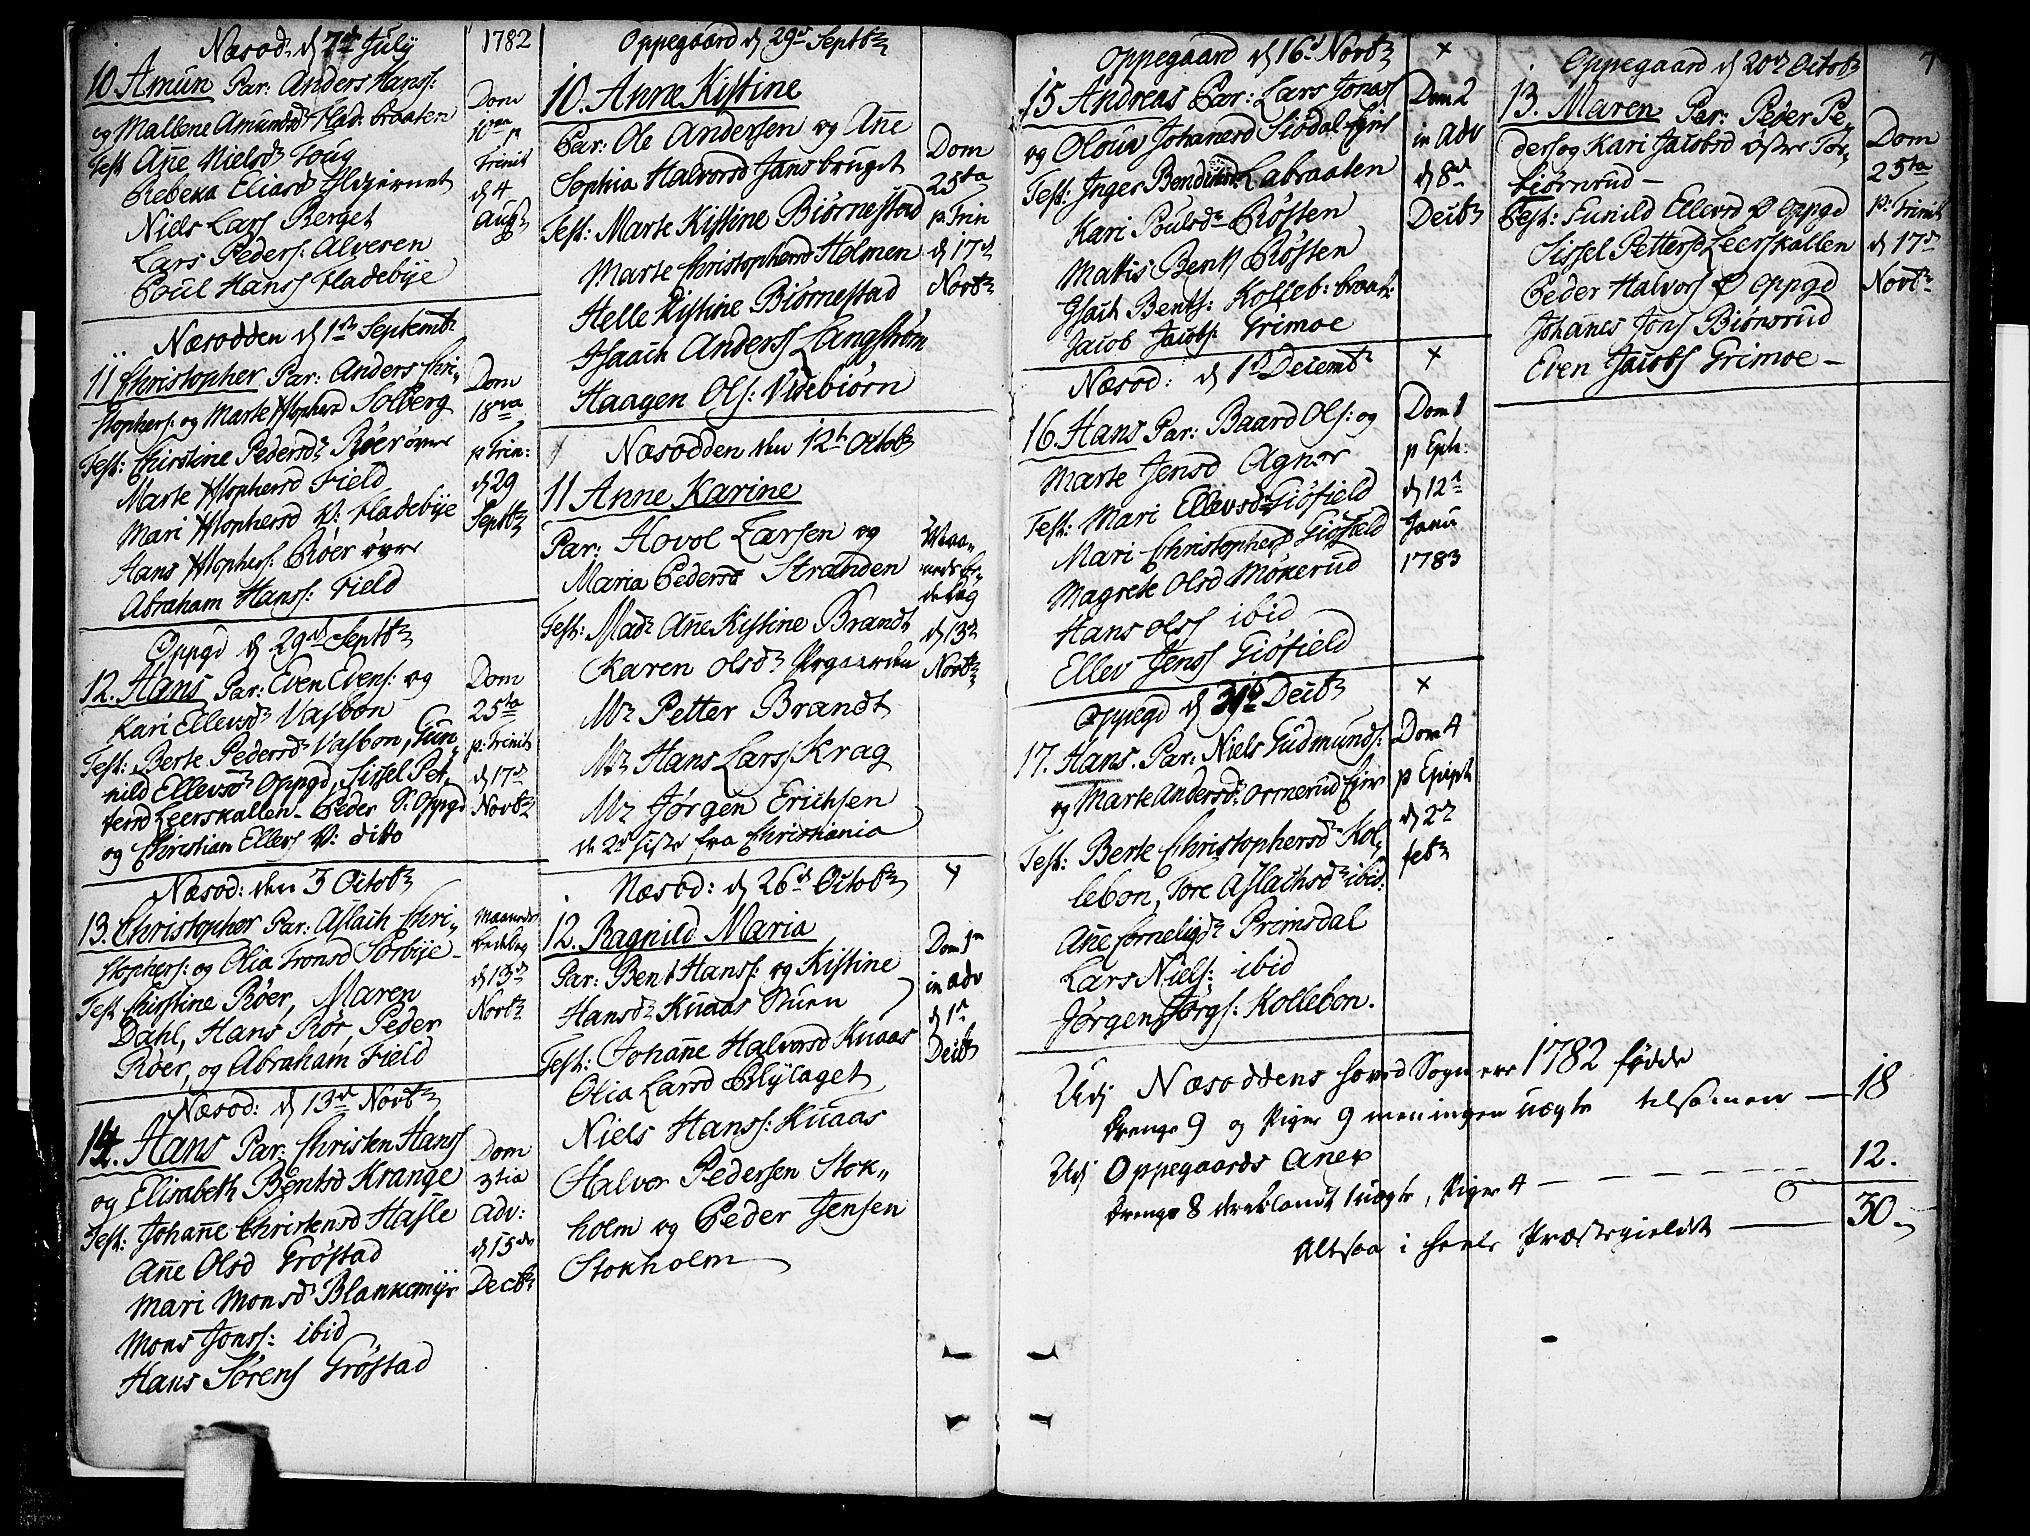 Næsod: d 7de July
1782
10 Amun Par: Anders Hanss:
og Mallene Amundsd Flad: braaten
Test Añe Nielsd Toug
Rebeka Eliasd
Niels Larss Berget
Lars Peders: Alveren
Poul Hanss Fladebÿe
Dom
10ma p
Trinit
d 4
Augst
Næsodden d 1ste Septembr
11 Christopher Par: Anders Chri-
stophers: og Marte Xstophersd Solberg
Test: Chirstine Pedersdr Røer øvre
Marte Xstophersd Field
Mari Xstophersd V: Fladebÿe
Hans Xstophers: Røer øvre
Abraham Hanss: Field
Dom
18va
p Trin:
d 29
Septbr
Oppgd d 29de Septbr
12. Hans Par: Even Evens: og
Kari Ellevsdr Vasbon
Test: Berte Pedersdr Vasbon, Gun-
nild Ellevsdr Oppgd, Sissel Pet-
tersd Leerskallen. Peder Ø: Oppgd
og Christian Ellevs V: ditto
Dom
25ta
p: Trinit
d 17de
Novbr
Næsod: den 3 Octobr
13. Christopher Par: Aslach Chri-
stophers: og Olia Tronsd Sørbÿe
Test Chirstine Røer, Maren
Dahl, Hans Rør, Peder
Røer, og Abraham Field
Maaneds
Bededag
d 13de
Novbr
Næsod: d 13de Novbr
14. Hans Par: Christen Hanss
og Elisabeth Bentsd Krange
Test: Johañe Christensd Hasle
Añe Olsd Grøstad
Mari Monsdr Blankemÿr
Mons Jonss: ibid
Hans Sørens Grøstad
Dom
3tia
Adv:
d 15de
Decbr
Oppegaard d 29de Septbr
10. Anne Kistine
Par: Ole Andersen og Añe
Sophia Halvorsd Jansbruget
Test: Marte Kistine Biørnestad
Marte Christophersd Holmen
Helle Kistine Biørnestad
Isaach Anderss Langstrøm
Haagen Ols: Videbiørn
Dom
25ta
p: Trin
d 17de
Novbr
Næsodden den 12te Octobr
11 Anne Karine
Par: Hovol Larsen og
Maria Pedersd Stranden
Test: Madr Añe Kistine Brandt
Karen Olsdr
Mr Petter Brandt
Mr Hans Larss Krag
Mr Jørgen Erichsen
de 2de siste fra Christiania
Maa-
neds Be-
dedag
d 13de
Novbr
Næsod: d 26de Octobr
12. Ragnild Maria
Par: Bent Hanss: og Kistine
Hansdr Knaas Stuen
Test: Johañe Halvorsd Knaas
Olia Larsd Blÿlaget
Niels Hanss: Knaas
Halvor Pedersen Stok-
holm og Peder Jensen
Stokholm
Dom 1ma
in adv
d 1te
Decbr
Oppegaard d 16de Novbr
15 Andreas Par: Lars Jonss
og Olouv Johanesd Siødal Eier
Test: Inger Bendictsd Labraaten
Kari Poulsdr Røsten
Mattis Bents Røsten
Isach Bents: Kolleb: braat:
Jacob Jacobs: Grimoe
Dom 2
in adv
d 8de
Decbr
Næsod: d 1te Decembr
16. Hans Par: Baard Ols: og
Marte Jensd Agnor
Test: Mari Ellevsdr Giøfield
Mari Christophersd Giøfield
Magrete Olsd Møkerud
Hans Olss ibid
Ellev Jenss Giøfield
Dom 1
p Eph:
d 12te
Janu
1783
Oppegd d 31te Decbr
17. Hans. Par: Niels Gudmunds:
og Marte Andersdr Ormerud Eier
Test: Berte Christophersdr Kol-
lebon, Tore Aslachsdr ibid:
Añe Corneligdr Primsdal
Lars Niels: ibid
Jørgen Jørgs: Kollebon.
Dom 4
p Epiph
d 2de
febr
Oppegaard d 20de Octobr
7
13. Maren Par: Peder Pe-
derss og Kari Jacobsd østre Tor-
biørnrud
Test: Gunild Ellevsd Ø Oppgd
Sissel Pettersd Leerskallen
Peder Halvors Ø Oppgd
Johanes Jons Biønsrud
Even Jacobs Grimoe
Dom
25ta
p: Trinit
d 17de
Novbr
Udj Næsoddens hoved Sogn ere 1782 fødde
Drenge 9 og Piger 9 men ingen uægte tilsamen — 18
Udj Oppegaards Anex
Drenge 8 deriblandt 1 uægte, Piger 4 — 12.
Altsaa i heele Præstegieldet — 30.